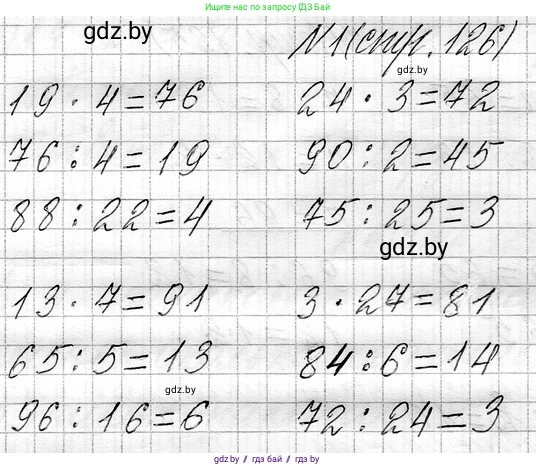 Ищите нас по запросу ГДЗ Бай
gdz.by
N1(стр. 126)
gdz.by
19 · 4 = 76 24 · 3 = 72
76 : 4 = 19 90 : 2 = 45
88 : 22 = 4 75 : 25 = 3
gdz.by
13 · 7 = 91 3 · 27 = 81
65 : 5 = 13 84 : 6 = 14
gdz.by
96 : 16 = 6 72 : 24 = 3
gdz.by / гдз бай / vk gdz by